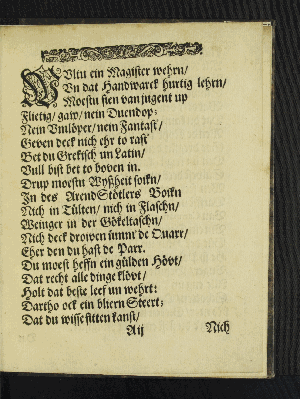 WUltu ein Magister wehrn/
Vn dat Handwarck hurtig lehrn/
Moestu sien van jugent up
Flietig/ gaw/ nein Duendop;
Nein Vmlöper/ nein Fantast/
Geven deck nich ehr to rast
Bet du Grekisch un Latin/
Vull bist bet to boven in.
Drup moestu Wyßheit soikn/
In des ArendStötlers Boikn
Nich in Tülten/ nich in Flaschn/
Weinger in der Gökeltaschn/
Nich deck drowen ümm' de Quarr/
Eher den du hast de Parr.
Du moest heffn ein gülden Hövt/
Dat recht alle dinge klövt/
Holt dat beste leef un wehrt:
Dartho ock ein bliern Steert;
Dat du wisse sitten kanst/
Aij Nich